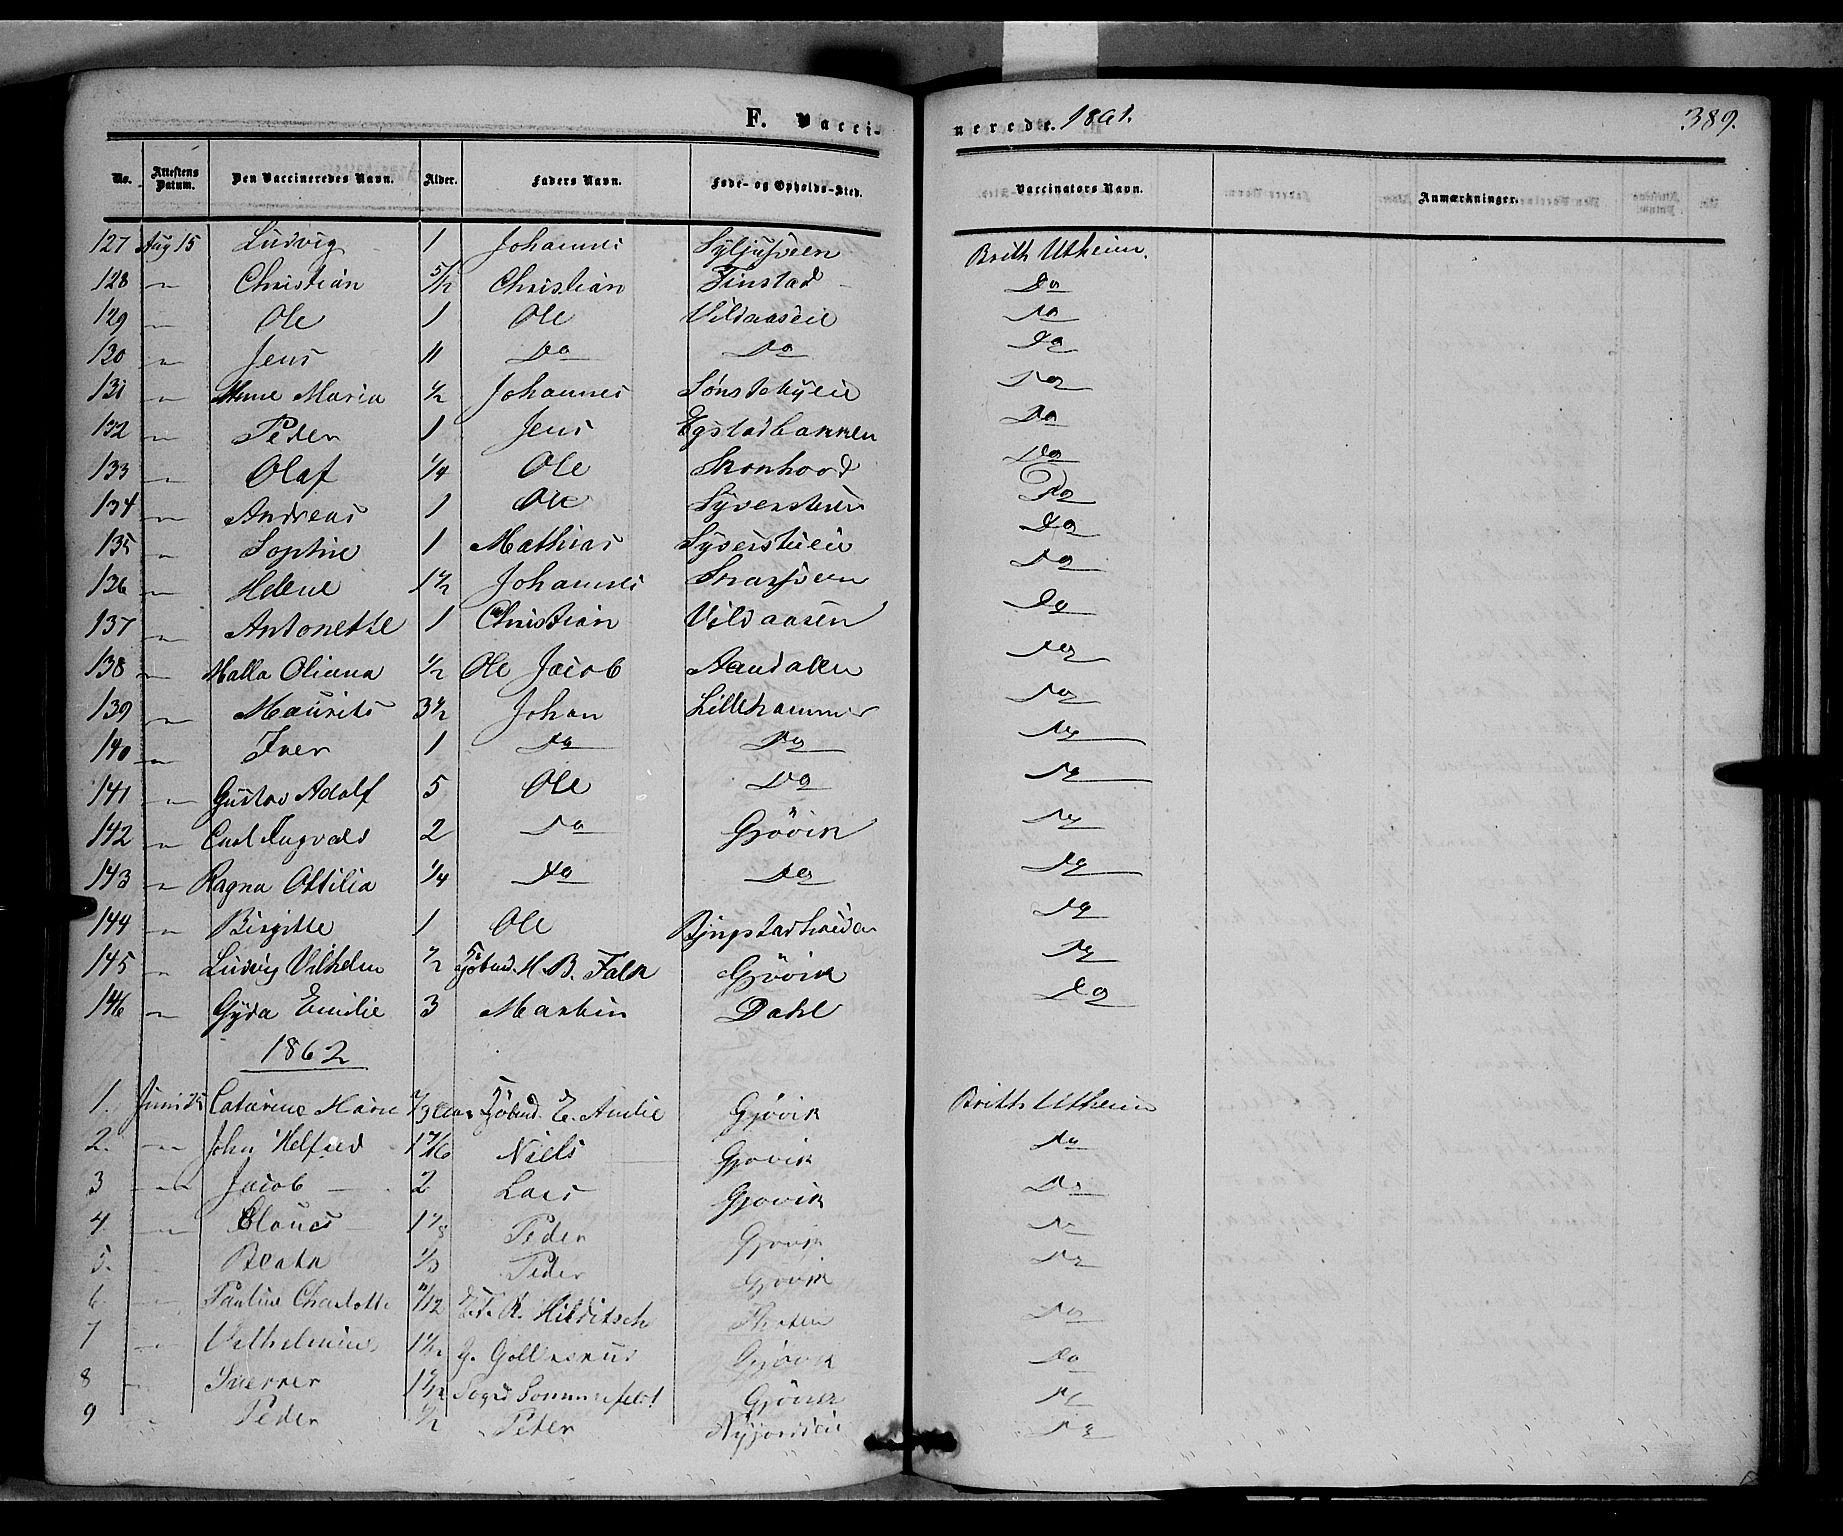 F. Vaccinerede. 1861. 389.
No. Attestens Datum. Den Vaccineredes Navn. Alder. Faders Navn. Føde- og Opholds-Sted. Vaccinators Navn. Anmærkninger.
127 Aug 15 Ludvig 1 Johannes Syljusveen Brith Utheim.
128 " Christian 5/12 Christian Finstad Do
129 " Ole 1 Ole Vildaaseie Do
130 " Jens 11 Do Do Do
131 " Anne Maria 1/2 Johannes Sønstebyeie Do
132 " Peder 1 Jens Egstadbakken Do
133 " Olaf 1/4 Ole Do
134 " Andreas 1 Ole Syverstuen Do
135 " Sophie 1 Mathias Syverstueie Do
136 " Helene 1 1/2 Johannes Do
137 " Antonette 1 Christian Vildaasen Do
138 " Malla Oliana 1/2 Ole Jacob Aandalen Do
139 " Maurits 3 1/2 Johan Lillehammer Do
140 " Iver 1 Do Do Do
141 " Gustav Adolf 5 Ole Do Do
142 " Carl Ingvald 2 Do Gjøvik Do
143 " Ragna Ottilia 1/4 Do Do Do
144 " Birgitte 1 Ole Do
145 " Ludvig Vilhelm 1/2 M. B. Falk Gjøvik Do
146 " Gyda Emilie 3 Martin Dahl Do
1862
1. Juni Catarine Marie Gjøvik Brith Utheim
2. " John Helfred Niels Gjøvik Do
3 " Jacob 2 Lars Gjøvik Do
4. " Peder Gjøvik Do
5. " Beata 1/3 Peder Gjøvik Do
6. " Pauline Charlotte 11/12 Hilditsch Do
7 " Vilhelmine G. Gjøvik Do
8 " Sverrer Sommerfeldt Gjøvik Do
9 " Peder 1/2 Peter Do